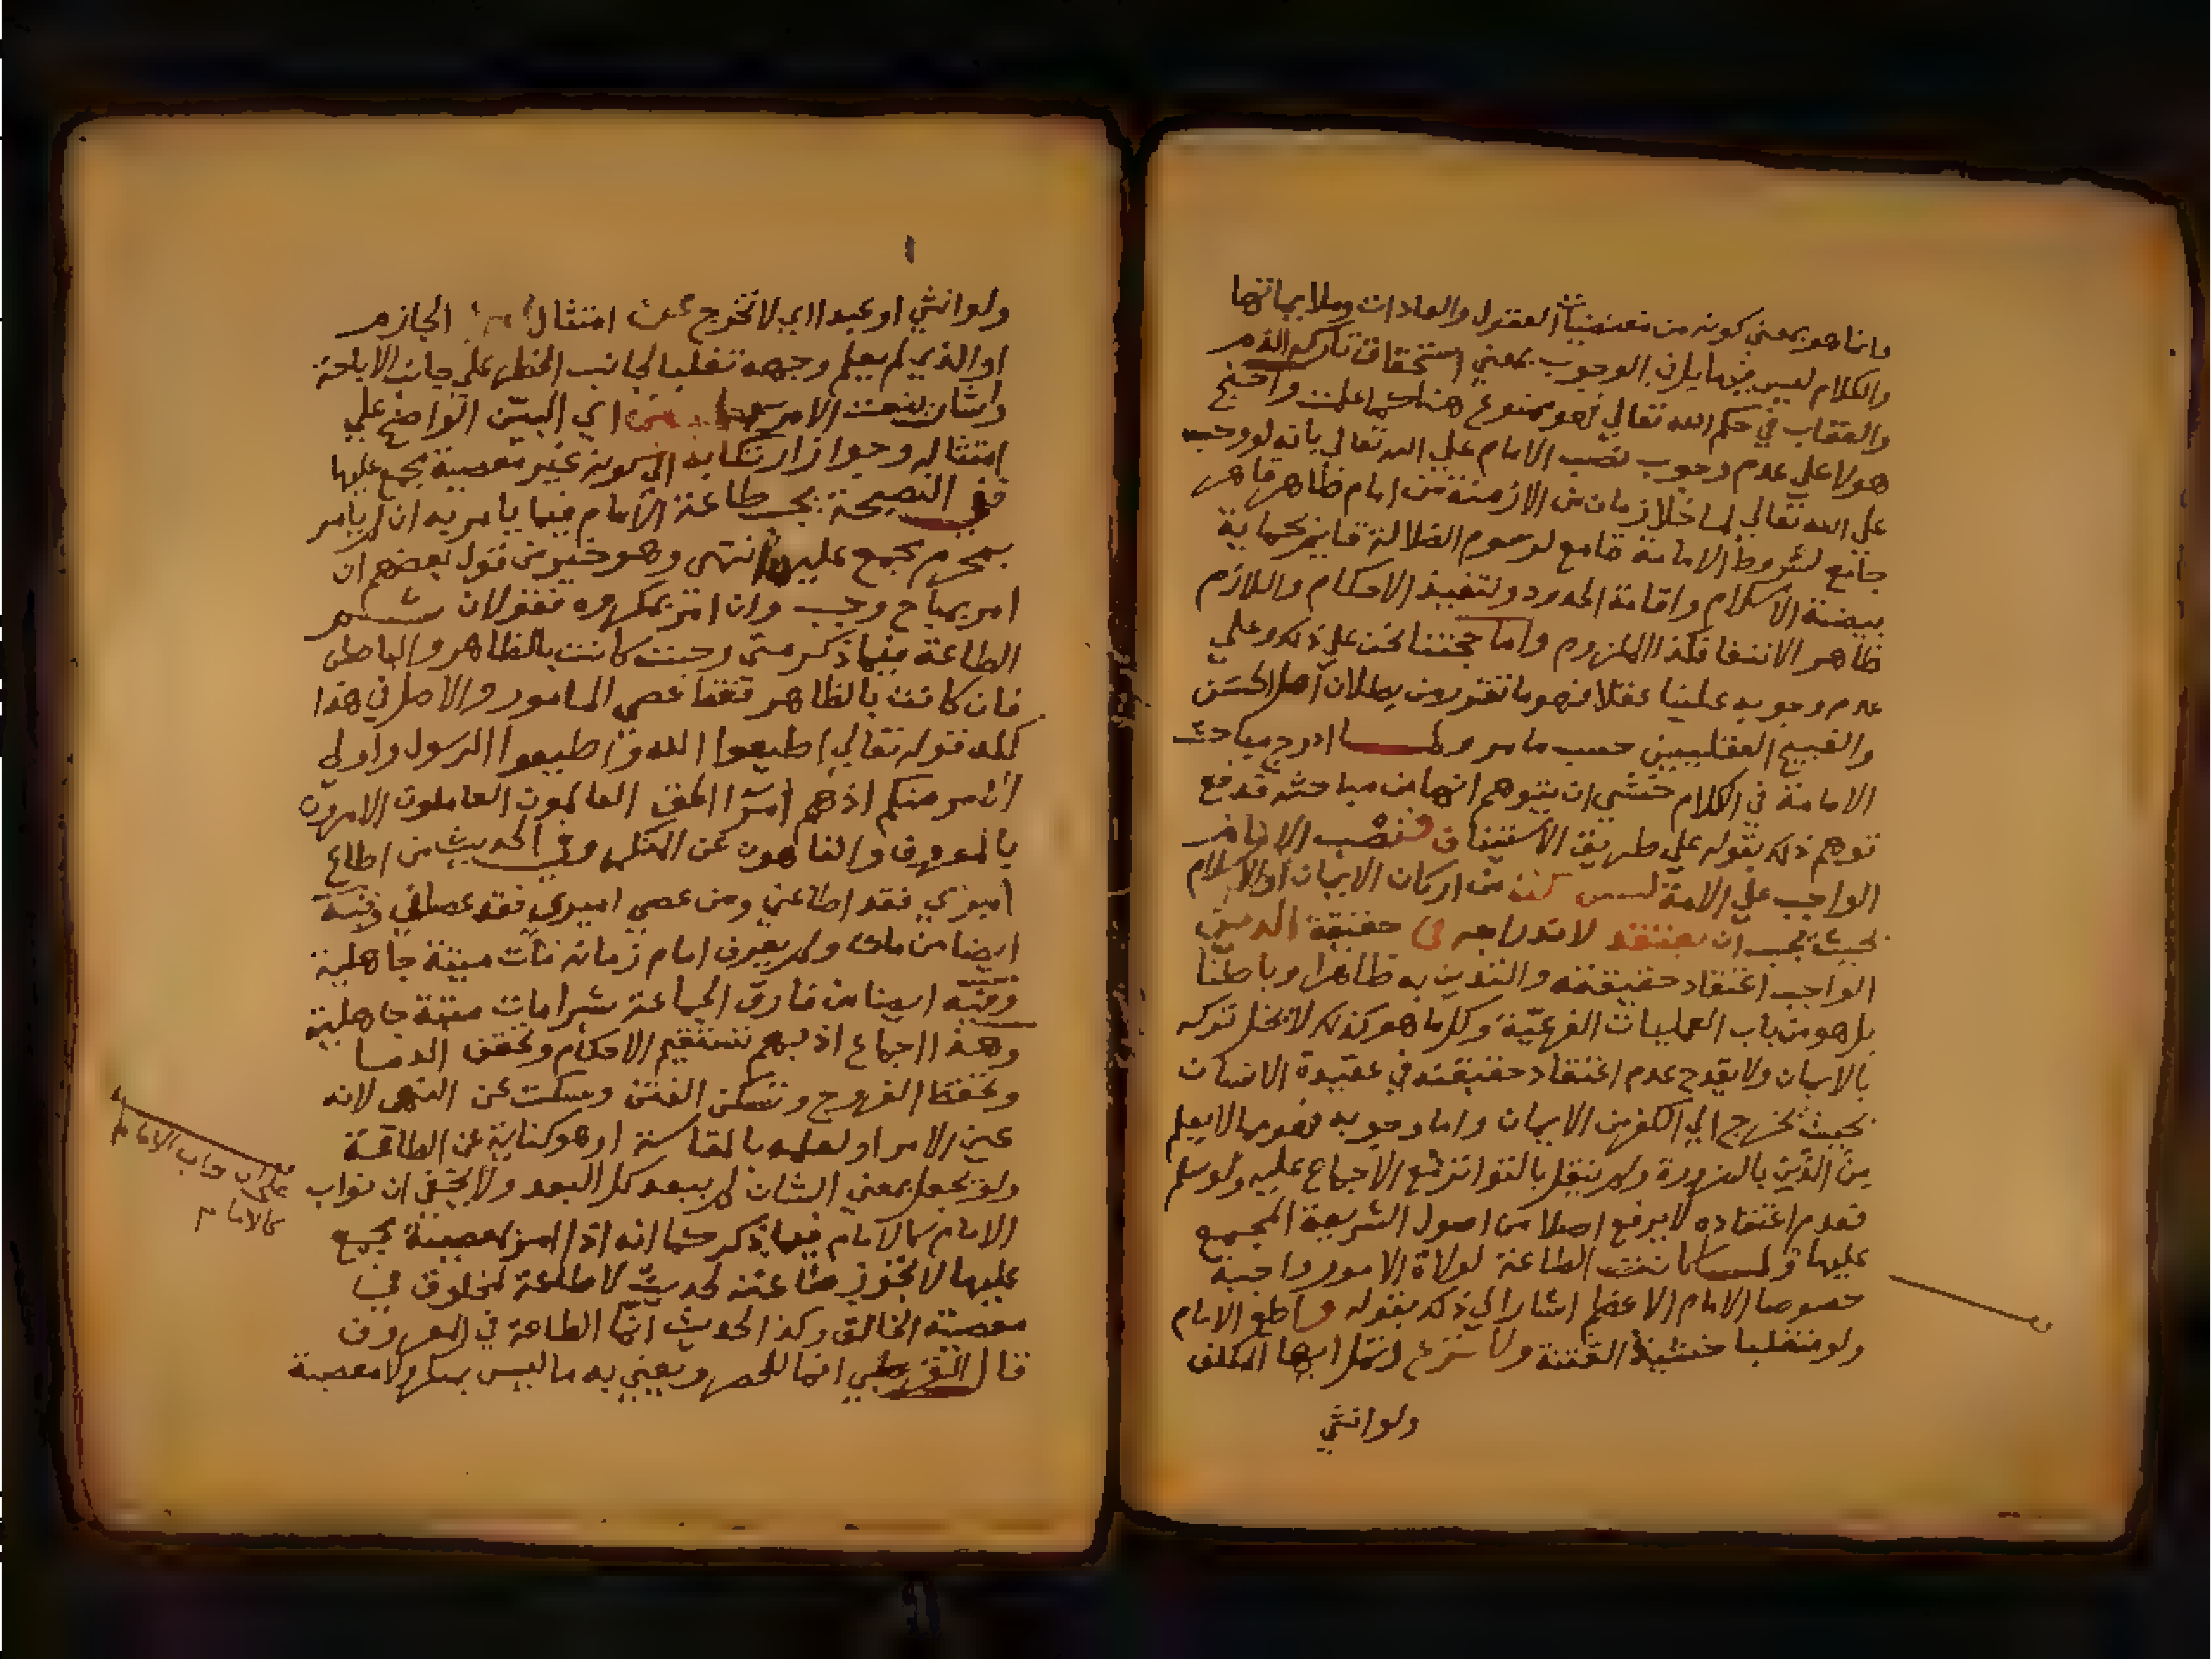 وانما هو بمعني كونه من مقتضيات العقول والعادات وملايماتها
والكلام ليس فيه ما يلزم الوجوب بمعني استحقاق تاركه الذم
والعقاب في حكم الله تعالي فهو ممنوع هنا كما علمت واحتج
هولا علي عدم وجوب نصب الامام علي الله تعالي بانه لو وجب
علي الله تعالي لما خلا زمان من الازمنة من امام ظاهر قاهر
جامع لشروط الامامة قامع لرسوم الضلالة قايم بحماية
بيضة الاسلام واقامة الحدود وتنفيذ الاحكام واللازم
ظاهر الانتفا فكذا الملزوم واما حجتنا نحن علي ذلك وعلي
عدم وجوبه علينا عقلا فهو ما تقرر من بطلان اصل الحسن
والقبيح العقليين حسب ما مر ولما ادرج مباحث
الامامة في الكلام خشي ان يتوهم انها من مباحثه فدفع
توهم ذلك بقوله علي طريق الاستيناف فنصب الامام
الواجب علي الامة ليس من اركان الايمان او الاسلام
بحيث يجب ان يعتقد لاندراجه في حقيقة الدين
الواجب اعتقاد حقيقته والتدين به ظاهرا وباطنا
بل هو من باب العمليات الفرعية وكل ما هو كذلك لا يخل تركه
بالايمان ولا يقدح عدم اعتقاد حقيقته في عقيدة الانسان
بحيث يخرج الي الكفر من الايمان واما وجوبه فهو مما لا يعلم
من الدين بالضرورة ولم ينقل بالتواتر مع الاجماع عليه ولو سلم
فعدم اعتقاده لا يرفع اصلا من اصول الشريعة المجمع
عليها ولما كانت الطاعة لولاة الامور واجبة
خصوصا الامام الاعظم اشار الي ذلك بقوله واطع الامام
ولو متغلبا خشية الفتنة ولا تزغ ايها المكلف
ولو انثي
ولو انثي او عبدا اي لا تخرج عن امتثال الجازم
او الذي لم يعلم وجهه تغليبا لجانب الحظر علي جانب الاباحة
واشار بنعت الامر اي البين الواضح علي
امتثاله وجواز ارتكابه الي كونه غير معصية مجمع عليها
ففي النصيحة يجب طاعة الامام فيما يامر به ان لم يامر
بمحرم مجمع عليه انتهي وهو خير من قول بعضهم ان
امر بمباح وجب وان امر بمكروه فقولان ثم
الطاعة فيما ذكر متي وجبت كانت بالظاهر والباطن
فان كانت بالظاهر فقط عصي المامور والاصل في هذا
كله قوله تعالي اطيعوا الله واطيعوا الرسول واولي
الامر منكم اذ هم امرا الحق العالمون العاملون الامرون
بالمعروف والناهون عن المنكر وفي الحديث من اطاع
اميري فقد اطاعني ومن عصي اميري فقد عصاني وفيه
ايضا من مات ولم يعرف امام زمانه مات ميتة جاهلية
وفيه ايضا من فارق الجماعة شبرا مات ميتة جاهلية
وهذا اجماع اذ بهم تستقيم الاحكام وتحقن الدما
وتحفظ الفروج وتسكن الفتن وسكت عن النهي لانه
عين الامر او لعلمه بالمقايسة او هو كناية عن الطاعة
ولو يجعل بمعني الشان لم يبعد كل البعد ولا يخفي ان نواب
الامام كالامام فيما ذكر كما انه اذا امر بمعصية مجمع
عليها لا تجوز طاعته لحديث لا طاعة لمخلوق في
معصية الخالق وكذا الحديث انما الطاعة في المعروف
قال القرطبي انما للحصر ويعني به ما ليس بمنكر ولا معصية
كالامام